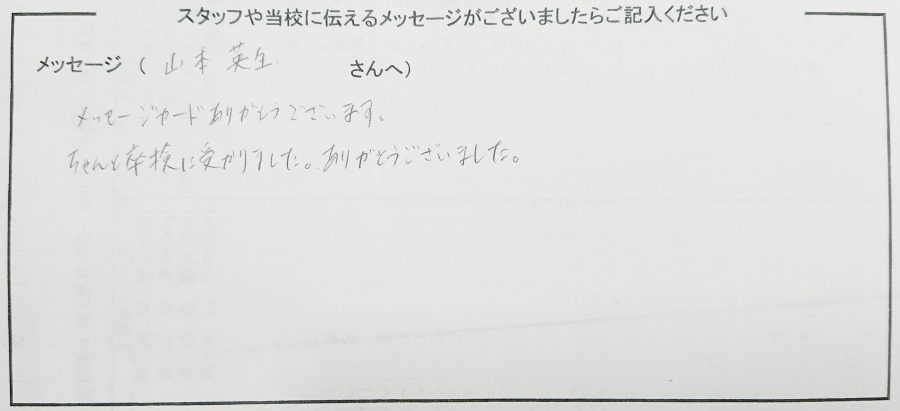 スタッフや当校に伝えるメッセージがございましたらご記入ください
メッセージ ( 山本 英生 さんへ)
メッセージカードありがとうございます。
ちゃんと卒検に受かりました。ありがとうございました。